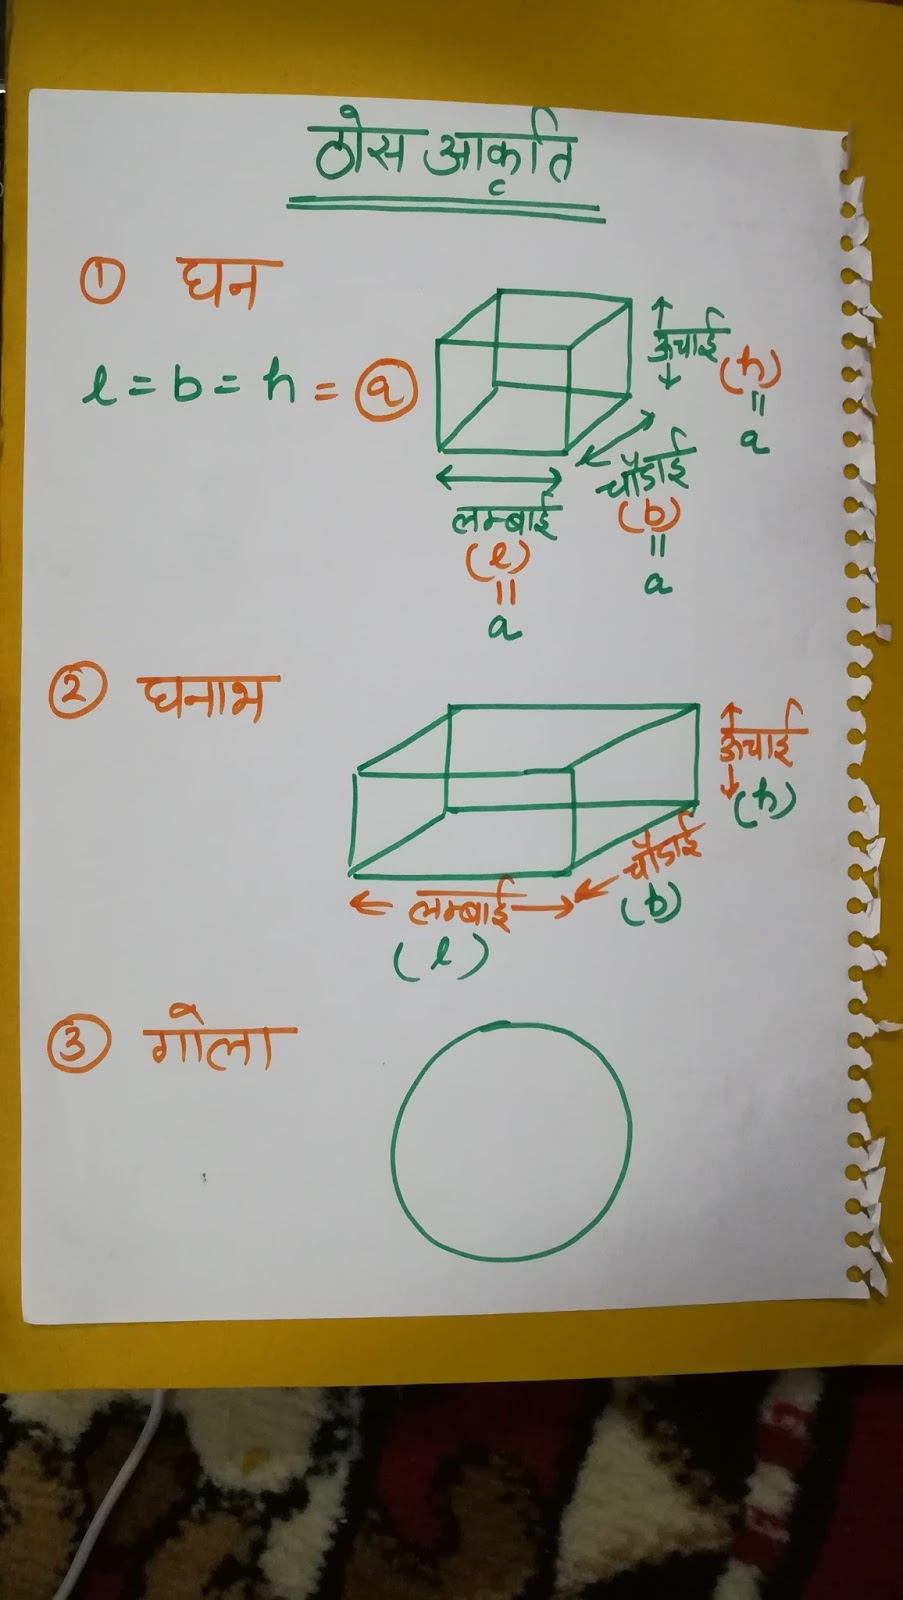 ठोस आकृति
① घन
l = b = h = a
ऊचाई
(h)
=
a
चौडाई
(b)
=
a
लम्बाई
(l)
=
a
② घनाभ
ऊचाई
(h)
चौडाई
(b)
लम्बाई
(l)
③ गोला